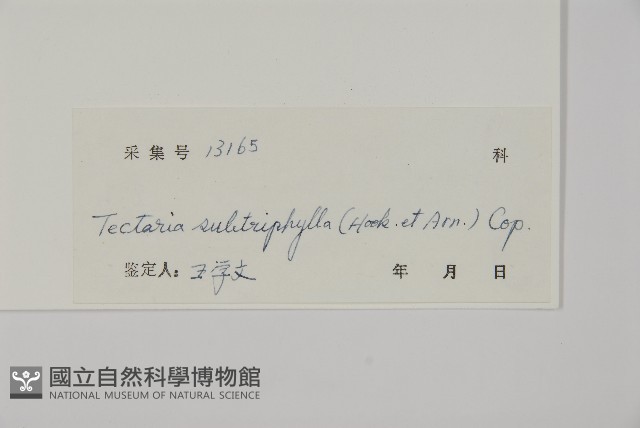 采集号 13165 科
Tectaria subtriphylla (Hook. et Arn.) Cop.
鉴定人: 王学文 年 月 日
國立自然科學博物館
NATIONAL MUSEUM OF NATURAL SCIENCE